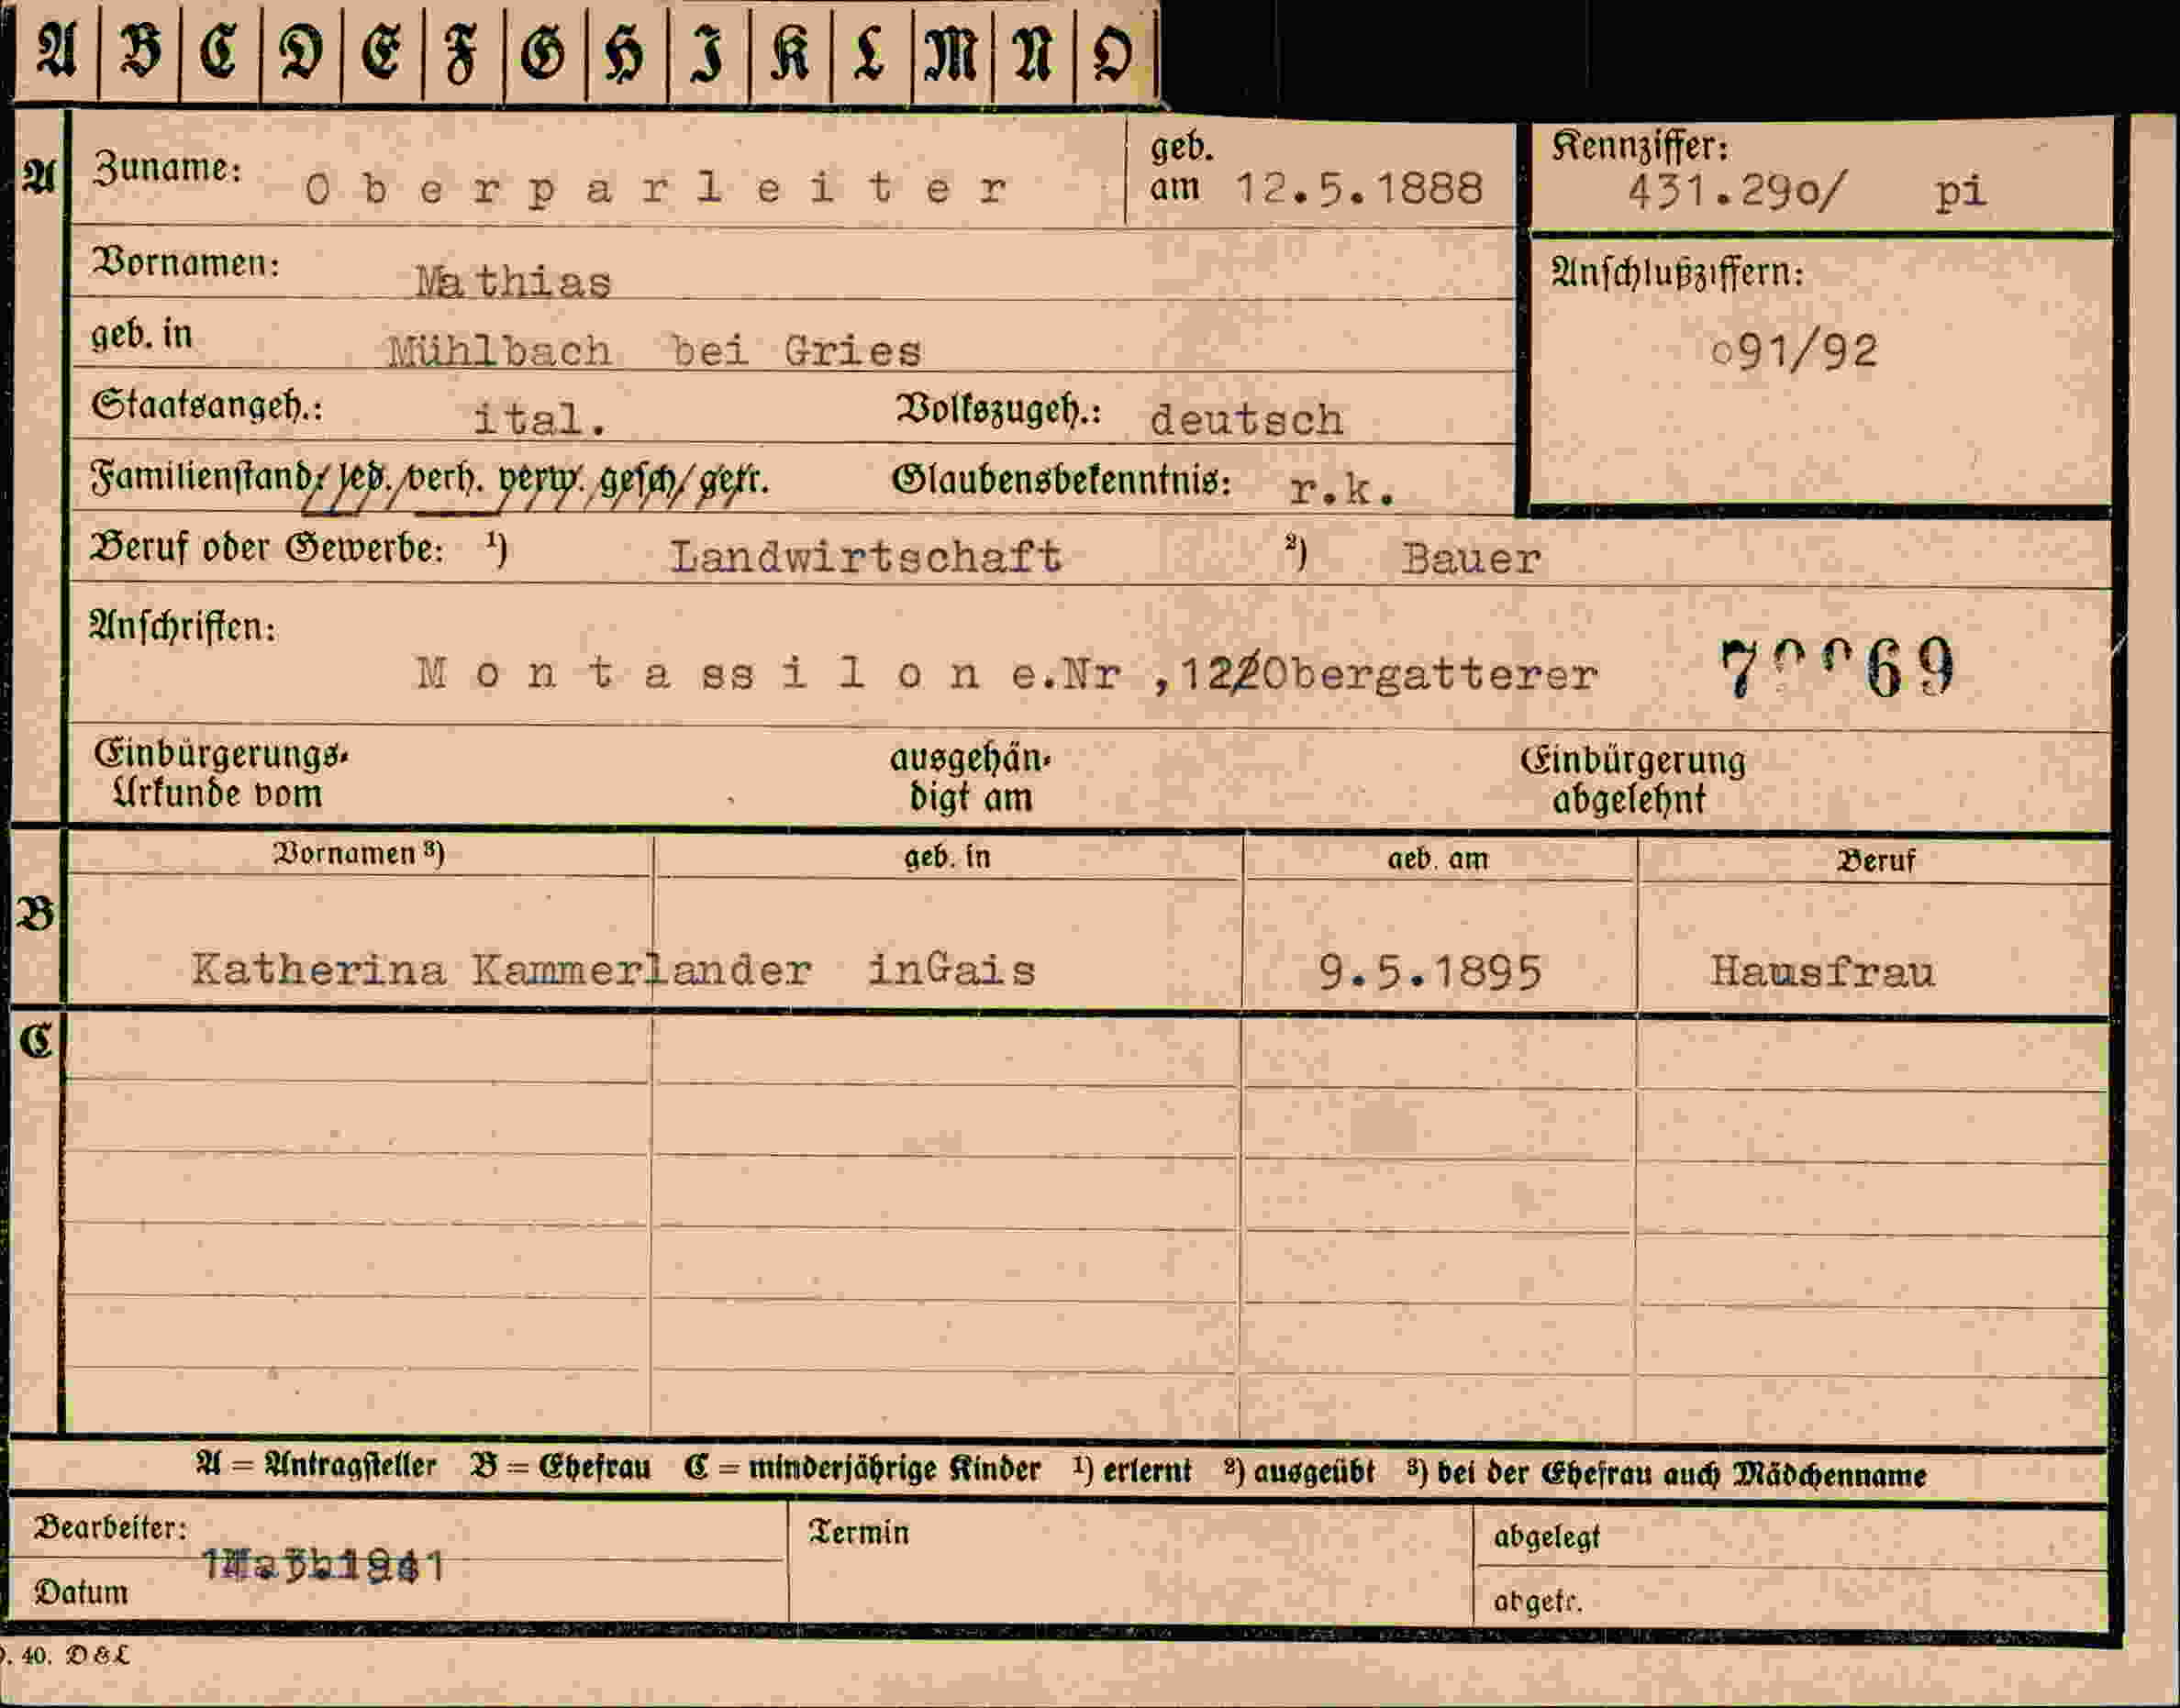 A B C D E F G H I K L M N O
A Zuname: Oberparleiter geb. am 12.5.1888
Kennziffer: 431.29o/ pi
Vornamen: Mathias
geb. in Mühlbach bei Gries
Anschlußziffern: o91/92
Staatsangeh.: ital. Volkszugeh.: deutsch
Familienstand: led. verh. verw. gesch. getr. Glaubensbekenntnis: r.k.
Beruf oder Gewerbe: ¹) Landwirtschaft ²) Bauer
Anschriften:
Montassilone.Nr ,12 Obergatterer
Einbürgerungs-Urkunde vom
ausgehändigt am
Einbürgerung abgelehnt
Vornamen ³) geb. in geb. am Beruf
B Katherina Kammerlander inGais 9.5.1895 Hausfrau
C
A = Antragsteller B = Ehefrau C = minderjährige Kinder ¹) erlernt ²) ausgeübt ³) bei der Ehefrau auch Mädchenname
Bearbeiter: Termin abgelegt
Datum abgetr.
40. D&L